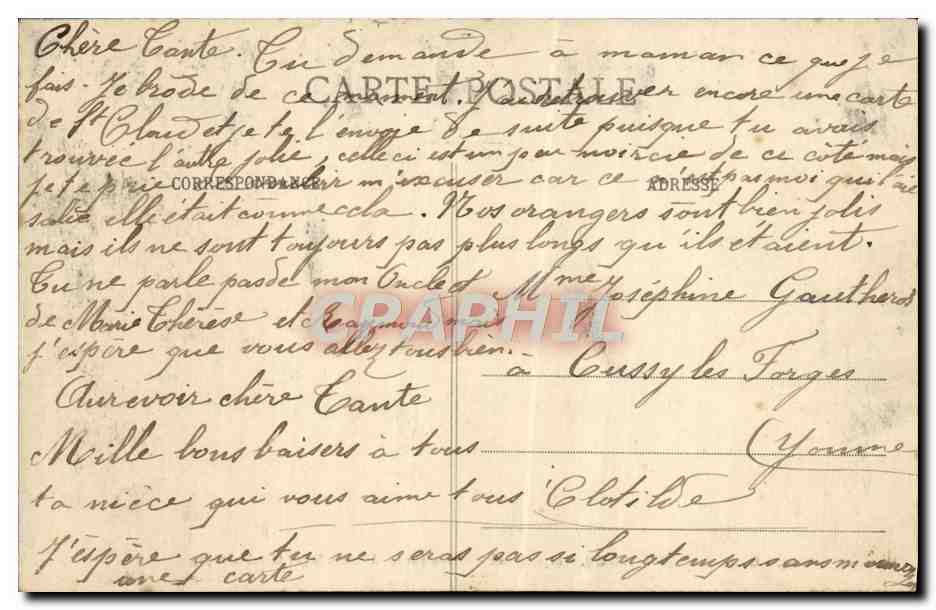 Chère Tante. Tu demande à maman ce que je
CARTE POSTALE
fais. Je brode de ce moment. J'ai retrouver encore une carte
de St Claud et je te l'envoje de suite puisque tu avais
trouvée l'autre jolie, celle ci est un peu noircie de ce côté mais
CORRESPONDANCE
ADRESSE
je te prie m'excuser car ce n'est pas moi qui l'ai
salie elle était comme cela. Nos orangers sont bien jolis
mais ils ne sont toujours pas plus longs qu'ils étaient.
Tu ne parle pas de mon Oncle
de Marie Thérèse et Raymond mais
j'espère que vous allez tous bien.
Mme Joséphine Gautherot
CPAPHIL
à Cussy les Forges
(Yonne
Au revoir chère Tante
Mille bons baisers à tous
ta nièce qui vous aime tous Clotilde
J'éspère que tu ne seras pas si longtemps sans
une carte